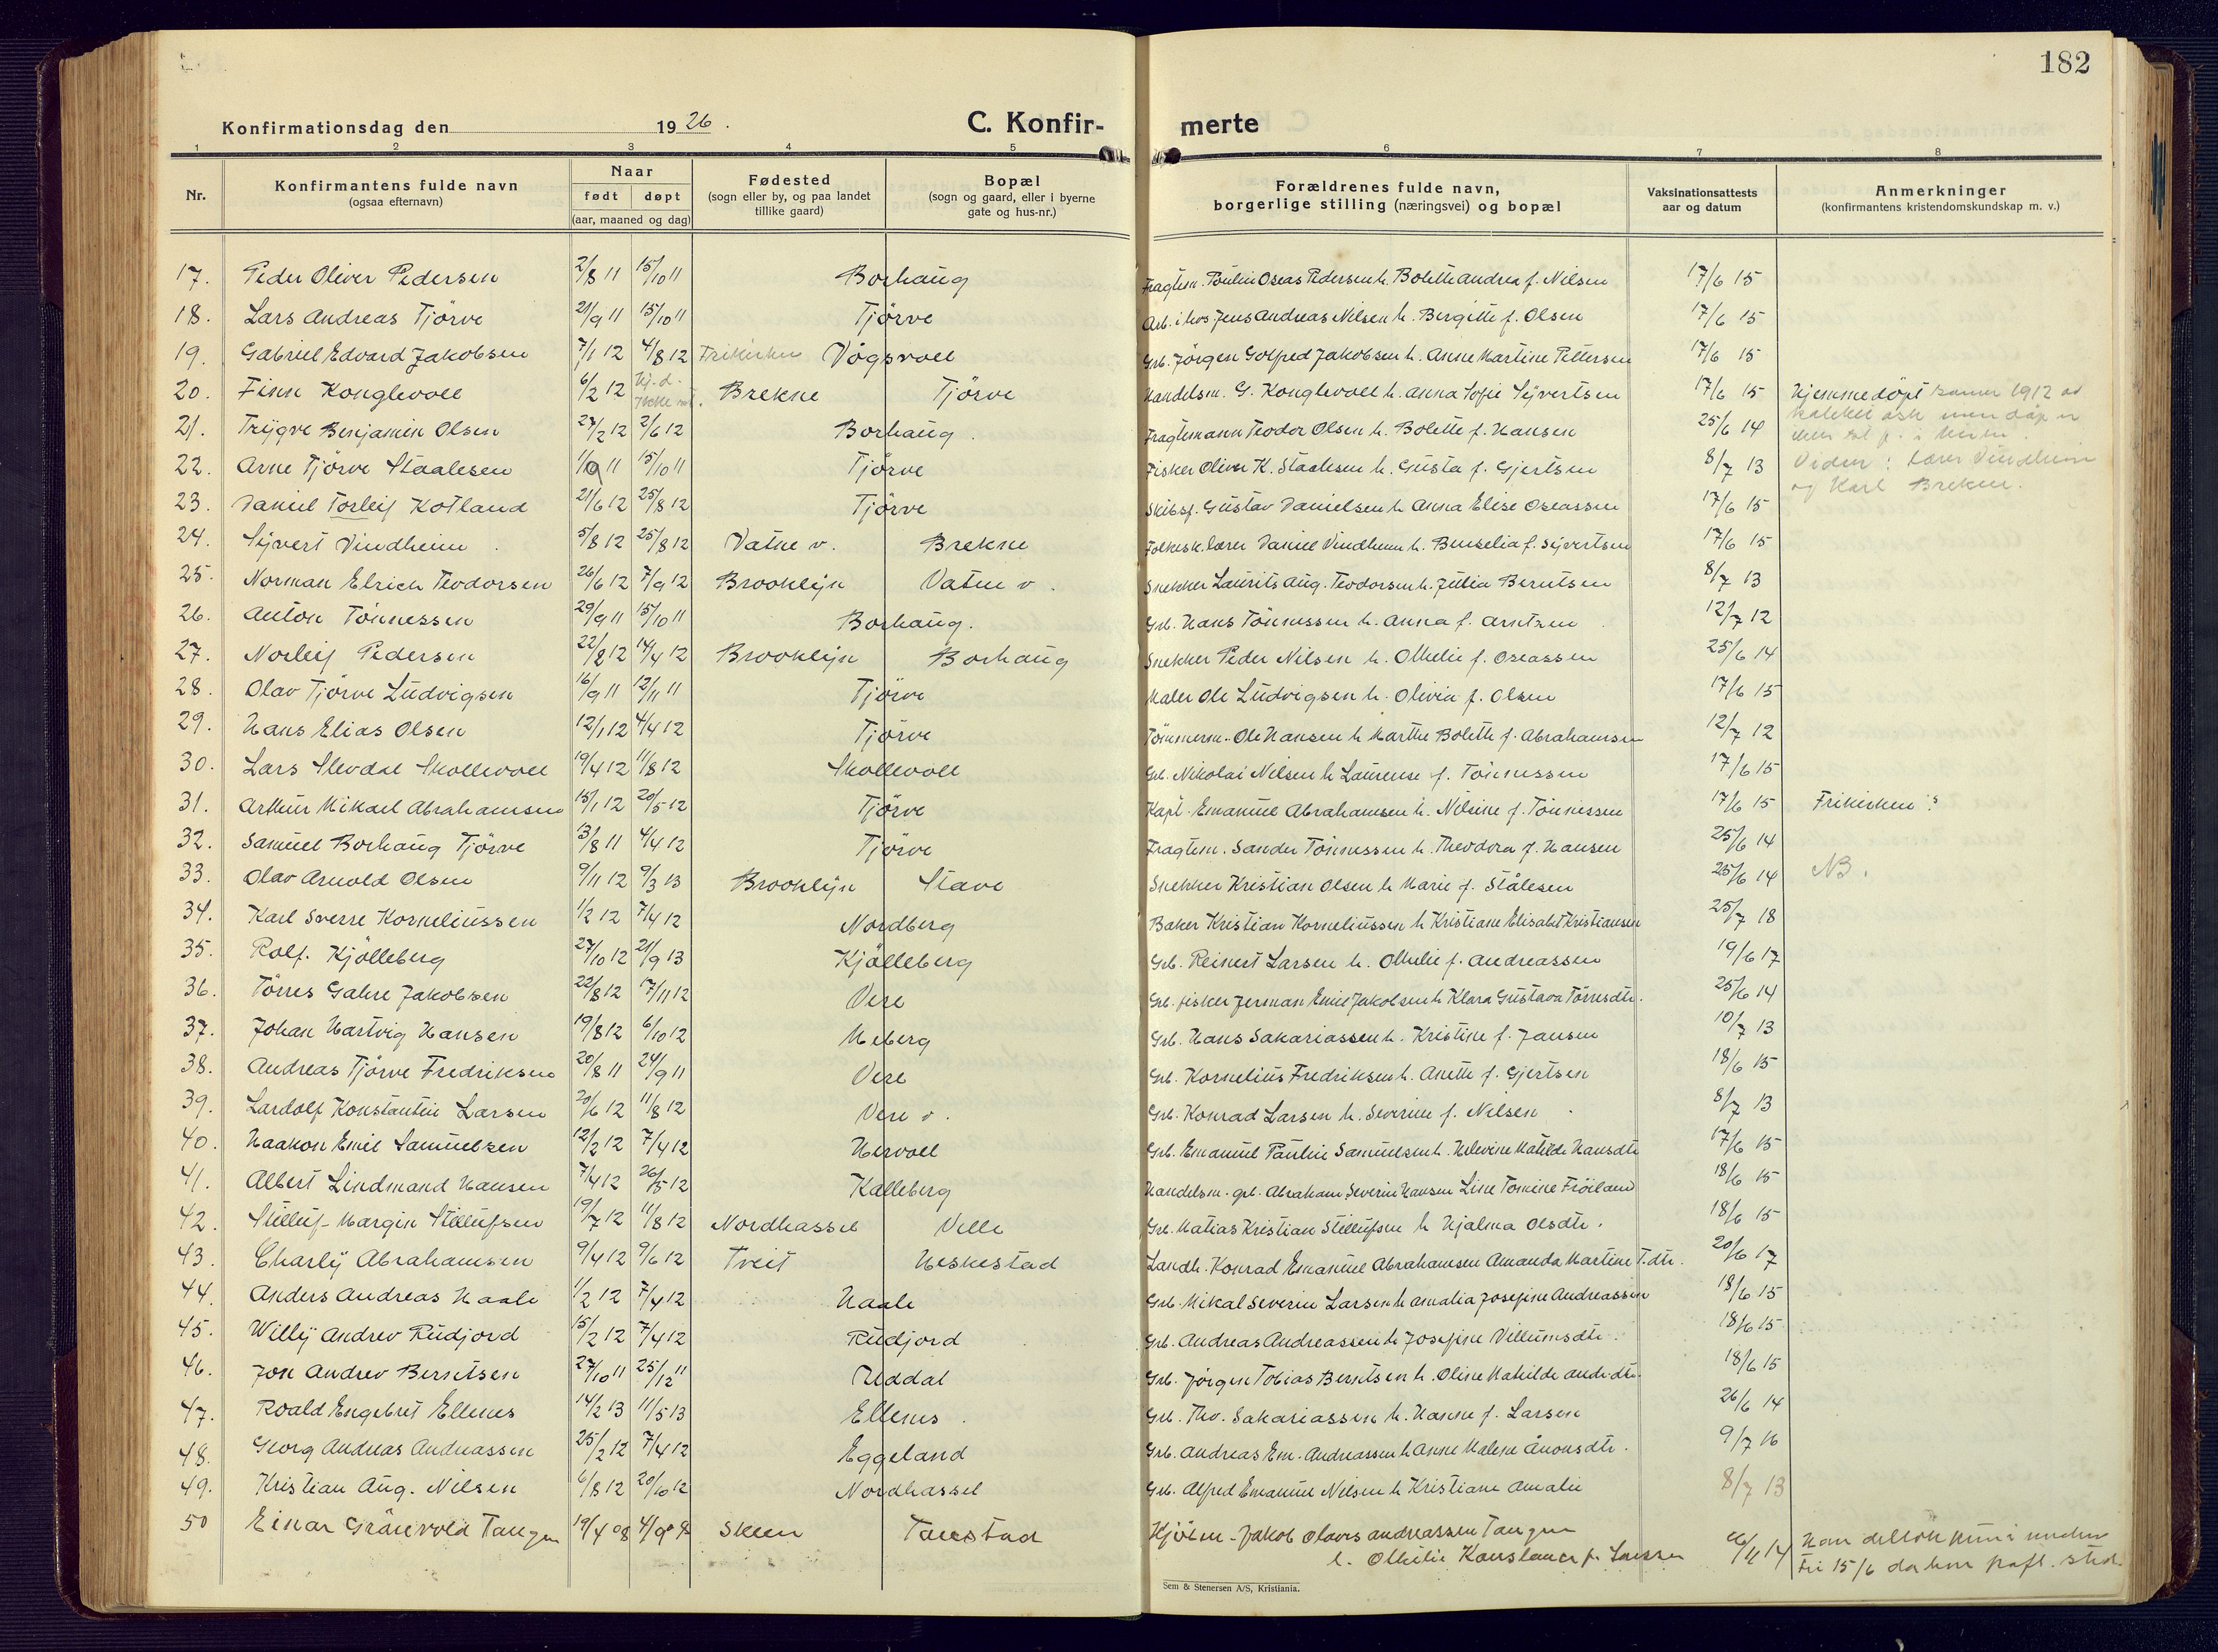 182
Konfirmationsdag den 1926.
C. Konfir-
merte
1 2 3 4 5 6 7 8
Nr.
Konfirmantens fulde navn
(ogsaa efternavn)
Naar
født døpt
(aar, maaned og dag)
Fødested
(sogn eller by, og paa landet
tillike gaard)
Bopæl
(sogn og gaard, eller i byerne
gate og hus-nr.)
Forældrenes fulde navn,
borgerlige stilling (næringsvei) og bopæl
Vaksinationsattests
aar og datum
Anmerkninger
(konfirmantens kristendomskundskap m. v.)
17. Peder Oliver Pedersen 2/8 11 15/10 11 Borhaug Fragtem. Paulin Oseas Pedersen h. Bolette Andrea f. Nilsen 17/6 15
18. Lars Andreas Tjörve 21/9 11 15/10 11 Tjörve Arb. i hvs. Jens Andreas Nilsen h. Birgitte f. Olsen 17/6 15
19. Gabriel Edvard Jakobsen 7/1 12 4/8 12 Frikirken Vågsvoll Grb. Jörgen Gotfred Jakobsen h. Anne Martine Pettersen 17/6 15
20. Finn Konglevoll 6/2 12 Hj. d. Brekne Tjörve Handelsm. G. Konglevoll h. Anna Sofie Sijvertsen 17/6 15 Hjemmedöpt 1912
21. Trijgve Benjamin Olsen 27/2 12 2/6 12 Borhaug Fragtemann Teodor Olsen h. Bolette f. Hansen 25/6 14 men dåp
22. Arne Tjörve Staalesen 1/9 11 15/10 11 Tjörve Fisker Oliver K. Staalesen h. Gusta f. Gjertsen 8/7 13 Vidner: Lærer Vindheim
23. Daniel Torleif Kotland 21/6 12 25/8 12 Tjörve Skibsf. Gustav Danielsen h Anna Elise Oseassen 17/6 15 og Karl Breken.
24. Sijvert Vindheim 5/8 12 25/8 12 Vatne v. Brekne Folkesk. lærer Daniel Vindheim h. Benselia f. Sijvertsen 17/6 15
25. Norman Elrich Teodorsen 26/6 12 7/9 12 Brooklijn Vatne v. Snekker Laurits Aug. Teodorsen h. Julia Berntsen 8/7 13
26. Anton Tönnessen 29/9 11 15/10 11 Borhaug. Grb. Hans Tönnessen h. Anna f. Arntzen 12/7 12
27. Norleif Pedersen 22/2 12 14/4 12 Brooklijn Borhaug Snekker Peder Nilsen h. Othelie f. Oseassen 25/6 14
28. Olav Tjörve Ludvigsen 16/9 11 12/11 11 Tjörve Maler Ole Ludvigsen h. Olivia f. Olsen 17/6 15
29. Hans Elias Olsen 12/1 12 4/4 12 Tjörve Tömmerm. Ole Hansen h Marthe Bolette f. Abrahamsen 12/7 12
30. Lars Slevdal Skollevoll 19/4 12 11/8 12 Skollevoll Grb. Nikolai Nilsen h Laurense f. Tönnessen 17/6 15
31. Arthur Mikael Abrahamsen 15/1 12 20/5 12 Tjörve Kapt. Emanuel Abrahamsen h. Nilsine f. Tönnessen 17/6 15 Frikirken?
32. Samuel Borhaug Tjörve 13/8 11 4/4 12 Tjörve Fragtem. Sander Tönnessen h. Theodora f. Hansen 25/6 14
33. Olav Arnold Olsen 9/11 12 9/3 13 Brooklijn Stave Snekker Kristian Olsen h Marie f. Stålesen 25/6 14 NB.
34. Karl Sverre Korneliussen 1/2 12 7/4 12 Nordberg Baker Kristian Korneliussen h Kristiane Elisabet Kristiansen 25/7 18
35. Rolf. Kjölleberg 27/10 12 21/9 13 Kjölleberg Grb. Reinert Larsen h. Othelie f. Andreassen 19/6 17
36. Törres Gahre Jakobsen 22/8 12 17/11 12 Vere Grb. fisker Jerman Emil Jakobsen h Klara Gustava Törresdtr. 25/6 14
37. Johan Hartvig Hansen 19/8 12 6/10 12 Meberg Grb. Hans Sakariassen h. Kristine f. Jansen 10/7 13
38. Andreas Tjörve Fredriksen 20/8 11 24/9 11 Vere Grb. Kornelius Fredriksen h. Anette f. Gjertsen 18/6 15
39. Lardolf Konstantin Larsen 20/6 12 11/8 12 Vere v. Grb. Konrad Larsen h. Severine f. Nilsen 8/7 13
40. Haakon Emil Samuelsen 12/2 12 7/4 12 Hervoll Grb. Emanuel Paulin Samuelsen h. Helevine Matilde Hansdtr 17/6 15
41. Albert Lindmand Hansen 7/4 12 26/5 12 Kalleberg Handelsm. grb. Abraham Severin Hansen Line Tomine Fröiland 18/6 15
42. Stilluf Margin Stillufsen 19/7 12 11/8 12 Nordhassel Velle Grb. Matias Kristian Stillufsen h Hjalma Olsdtr. 18/6 15
43. Charlij Abrahamsen 9/4 12 9/6 12 Tveit Heskestad Landh. Konrad Emanuel Abrahamsen Amanda Martine T.dtr. 20/6 17
44. Anders Andreas Haale 1/2 12 7/4 12 Haale Grb. Mikal Severin Larsen h Amalia Josefine Andreassen 18/6 15
45. Willij Andrev Rudjord 15/2 12 7/4 12 Rudjord Grb. Andreas Andreassen h Josefine Villumsdtr. 18/6 15
46. Jon Andrev Berntsen 27/10 11 25/12 11 Uddal Grb. Jörgen Tobias Berntsen h. Oline Mathilde Andr.dtr. 18/6 15
47. Roald Engebret Ellenes 14/2 13 11/5 13 Ellenes Grb. Thv. Sakariassen h. Hanne f. Larsen 26/6 14
48. Georg Andreas Andreassen 25/2 12 7/4 12 Eggeland Grb. Andreas Em. Andreassen h Anne Malene Ånonsdtr. 9/7 16
49. Kristian Aug. Nilsen 6/8 12 20/10 12 Nordhassel Grb. Alfred Emanuel Nilsen h Kristiane Amalie 8/7 13
50 Einar Grånvold Tangen 19/4 08 4/9 Skeen Tanstad Kjöbm. Jakob Olavis Andreassen Tangen 14 Han deltok kun i under
h. Othilie Konstance f. Larsen fri 15/6 da han
Sem & Stenersen A/S, Kristiania.